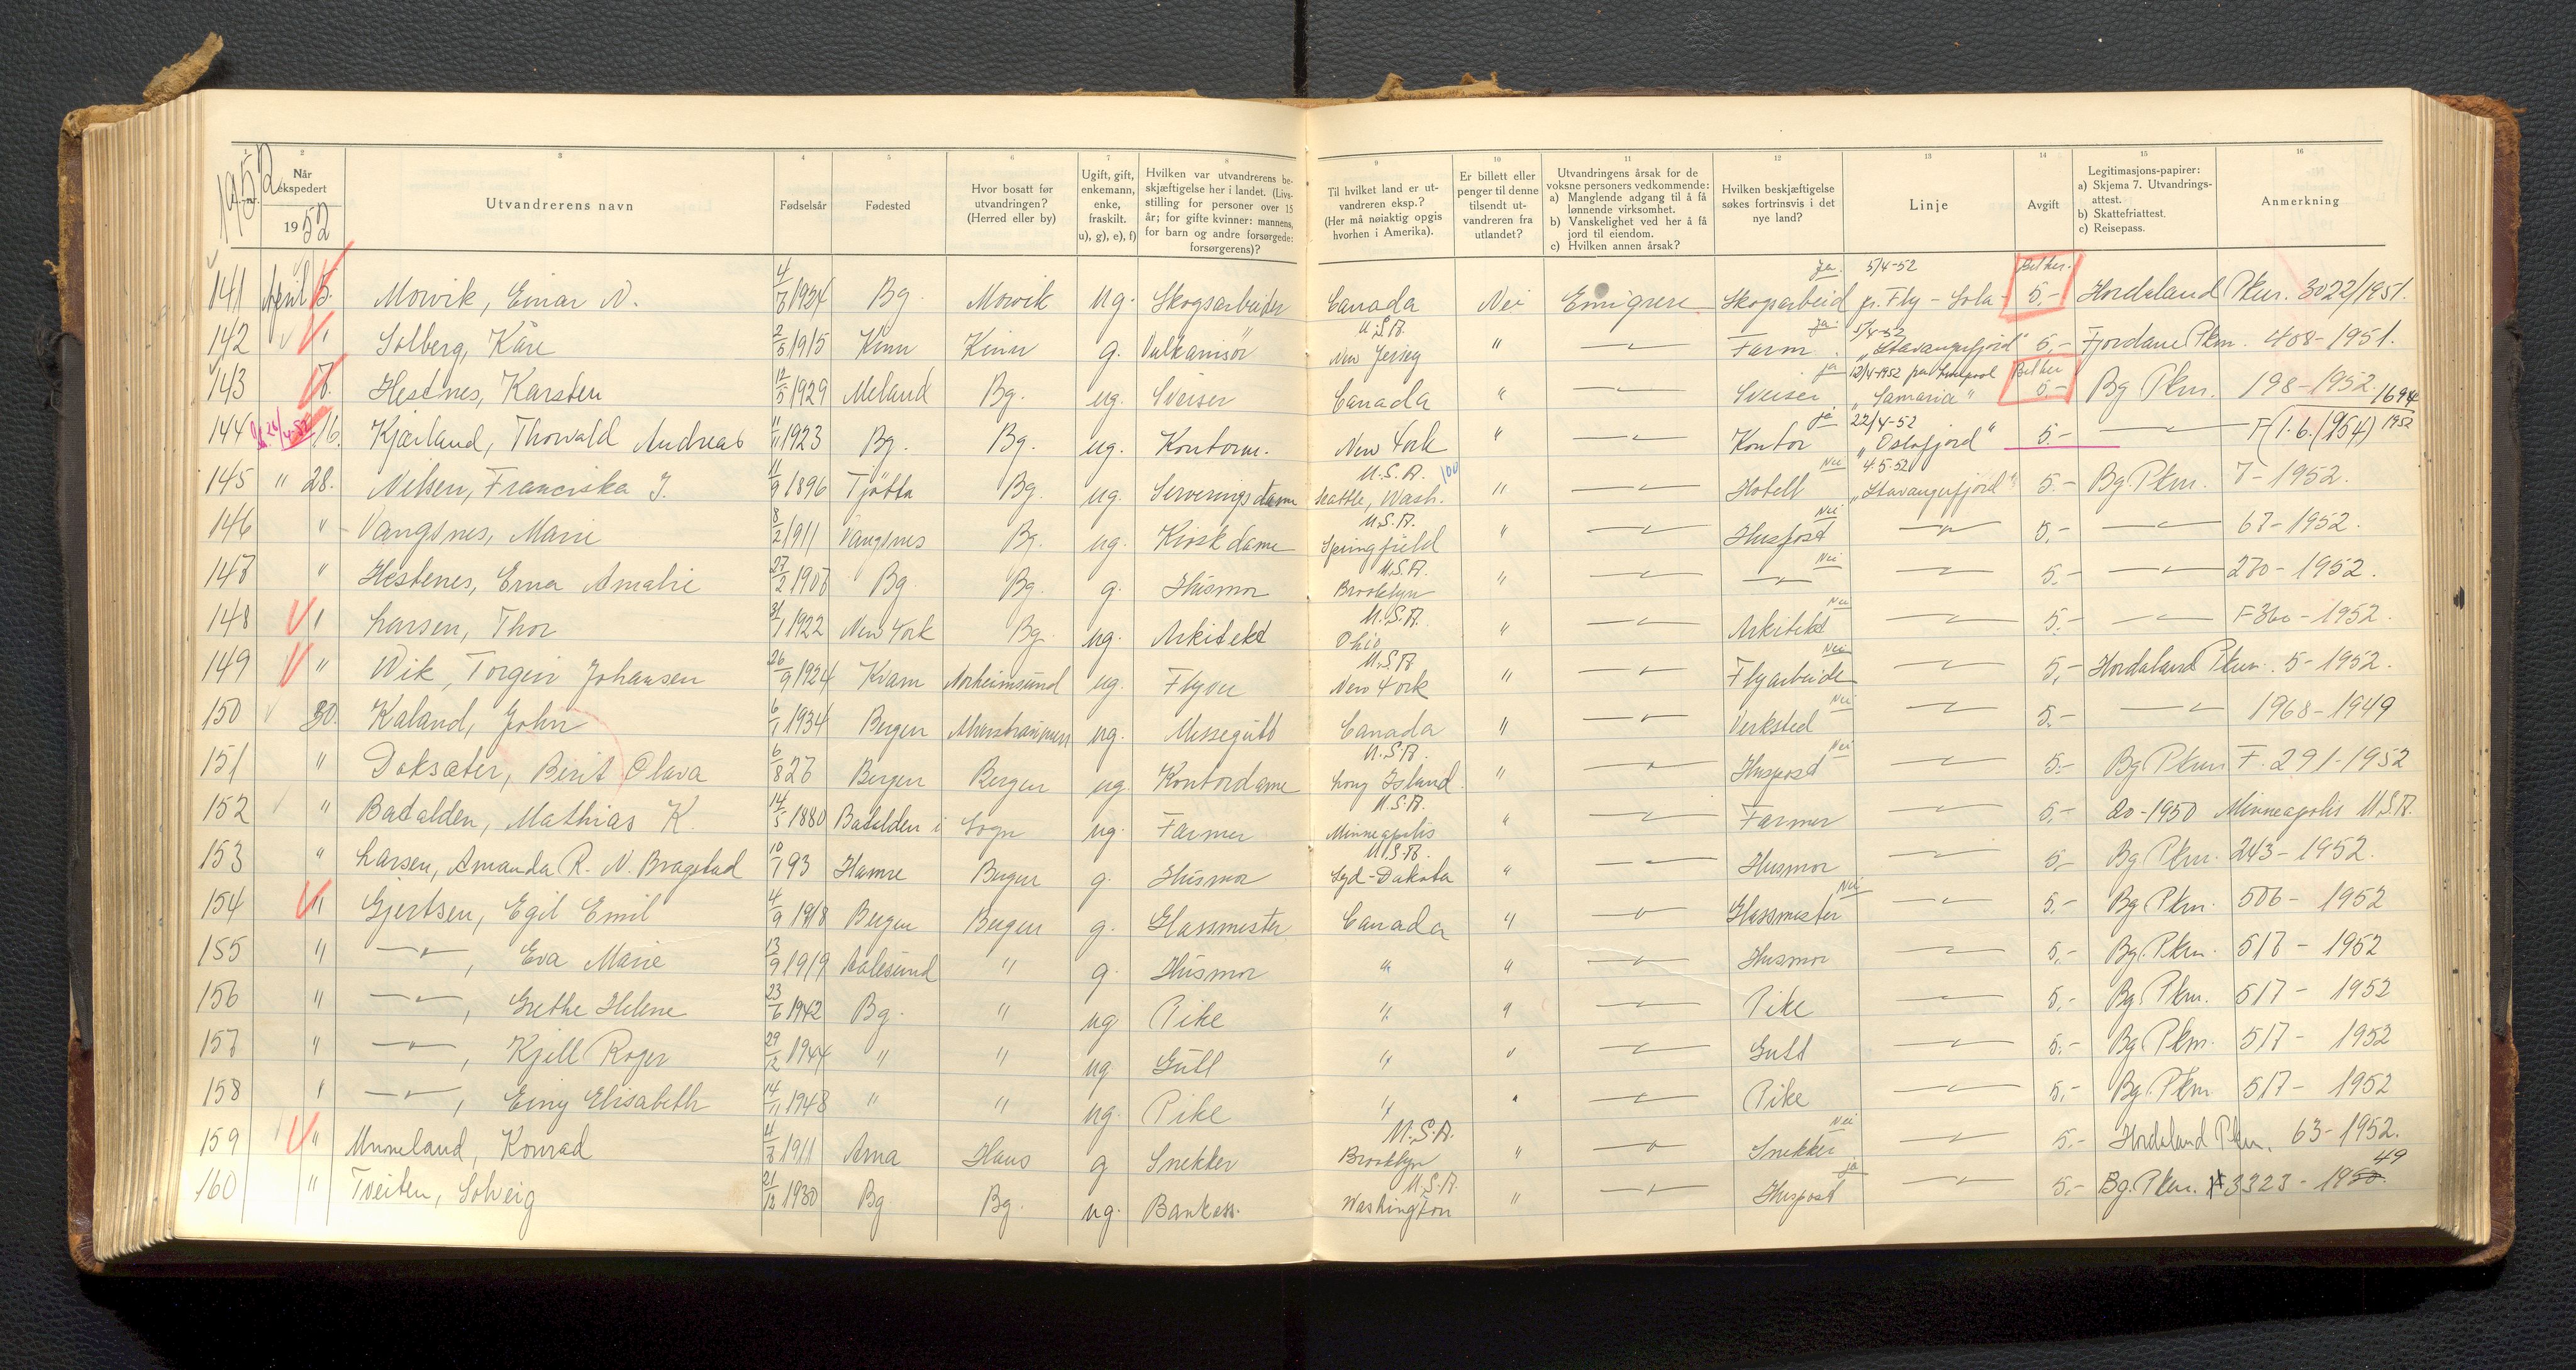 1952
1 2 3 4 5 6 7 8 9 10 11 12 13 14 15 16
Når ekspedert 1952 Utvandrerens navn Fødselsår Fødested Hvor bosatt før utvandringen? (Herred eller by) Ugift, gift, enkemann, enke, fraskilt. u), g), e), f) Hvilken var utvandrerens beskjæftigelse her i landet. (Livsstilling for personer over 15 år; for gifte kvinner: mannens, for barn og andre forsørgede: forsørgerens)? Til hvilket land er utvandreren eksp.? (Her må nøiaktig opgis hvorhen i Amerika). Er billett eller penger til denne tilsendt utvandreren fra utlandet? Utvandringens årsak for de voksne personers vedkommende: a) Manglende adgang til å få lønnende virksomhet. b) Vanskelighet ved her å få jord til eiendom. c) Hvilken annen årsak? Hvilken beskjæftigelse søkes fortrinsvis i det nye land? Linje Avgift Legitimasjons-papirer: a) Skjema 7. Utvandringsattest. b) Skattefriattest. c) Reisepass. Anmerkning
141 April 5. Morvik, Einar N. 1934 Bg. Morvik ug. Skogsarbeider Canada Nei Emigrere Skogsarbeid ja 5/4-52 pr. Fly - Sola 5.- Hordaland Pkm. 3022/1951.
142 " Solberg, Kåre 2/5 1915 Kinn Kinn g. Vulkanisør U.S.A. New Jersey " — " — Farm ja 5/4-52 "Stavangerfjord" 5.- Fjordane Pkm. 408-1951.
143 7. Hestnes, Karsten 12/5 1929 Meland Bg. ug. Sveiser Canada " — " — Sveiser ja 12/4-1952 fra Liverpool "Samaria" 5.- Bg Pkm. 198-1952.
144 16. Kjærland, Thorvald Andreas 11/11 1923 Bg. Bg. ug. Kontorm. New York " — " — Kontor ja 22/4-52 "Oslofjord" 5.- — " — F (1.6.1954) 1694 1952
145 " 28. Nilsen, Franciska J. 11/9 1896 Tjøtta Bg. ug. Serveringsdame U.S.A. 100 Seattle, Wash. " — " — Hotell Nei 4.5.52 "Stavangerfjord" 5.- Bg. Pkm. 7-1952.
146 " Vangsnes, Marie 8/2 1911 Vangsnes Bg. ug. Kioskdame U.S.A. Springfield " — " — Huspost Nei — " — 5.- — " — 67-1952.
147 " Hestenes, Erna Amalie 27/2 1907 Bg Bg. g. Husmor U.S.A. Brooklyn " — " — — " — Nei — " — 5.- — " — 270-1952.
148 " Larsen, Thor 31/1 1922 New York Bg. ug. Arkitekt U.S.A. Ohio " — " — Arkitekt Nei — " — 5.- — " — F 360-1952.
149 " Vik, Torgeir Johansen 26/9 1924 Kvam Norheimsund ug. Flyver U.S.A. New York " — " — Flyarbeide Nei — " — 5.- Hordaland Pkm. 5-1952.
150 30. Kaland, John 6/1 1934 Bergen Alverstraumen ug. Messegutt Canada " — " — Verksted Nei — " — 5.- — " — 1968-1949
151 " Doksæter, Berit Olava 6/8 27 Bergen Bergen ug. Kontordame U.S.A. Long Island " — " — Huspost Nei — " — 5.- Bg Pkm F. 291-1952
152 " Batalden, Mathias K. 14/5 1880 Batalden i Sogn ug. Farmer U.S.A. Minneapolis " — " — Farmer — " — 5.- 20-1950 Minneapolis U.S.A.
153 " Larsen, Amanda R. N. Bragstad 10/1 93 Hamre Bergen g. Husmor U.S.A. Syd-Dakota " — " — Husmor — " — 5.- Bg Pkm. 243-1952.
154 " Gjertsen, Egil Emil 4/9 1918 Bergen Bergen g. Glassmester Canada " — " — Glassmester Nei — " — 5.- Bg Pkm. 506-1952
155 " — " —, Eva Marie 13/9 1919 Aalesund " g. Husmor " " — " — Husmor — " — 5.- Bg. Pkm. 517-1952
156 " — " —, Grethe Helene 23/6 1942 Bg. " ug Pike " " — " — Pike — " — 5.- Bg. Pkm. 517-1952
157 " — " —, Kjell Roger 29/12 1944 " " ug. Gutt " " — " — Gutt — " — 5.- Bg Pkm. 517-1952
158 " — " —, Einy Elisabeth 14/11 1948 " " ug. Pike " " — " — Pike — " — 5.- Bg. Pkm. 517-1952
159 " Unneland, Konrad 1911 Arna Haus g Snekker U.S.A. Brooklyn " — " — Snekker Nei — " — 5.- Hordaland Pkm. 63-1952.
160 " Tveiten, Solveig 21/12 1930 Bg Bg. ug. Bankass. U.S.A. Washington " — " — Huspost ja — " — 5.- Bg. Pkm. 3323-1949